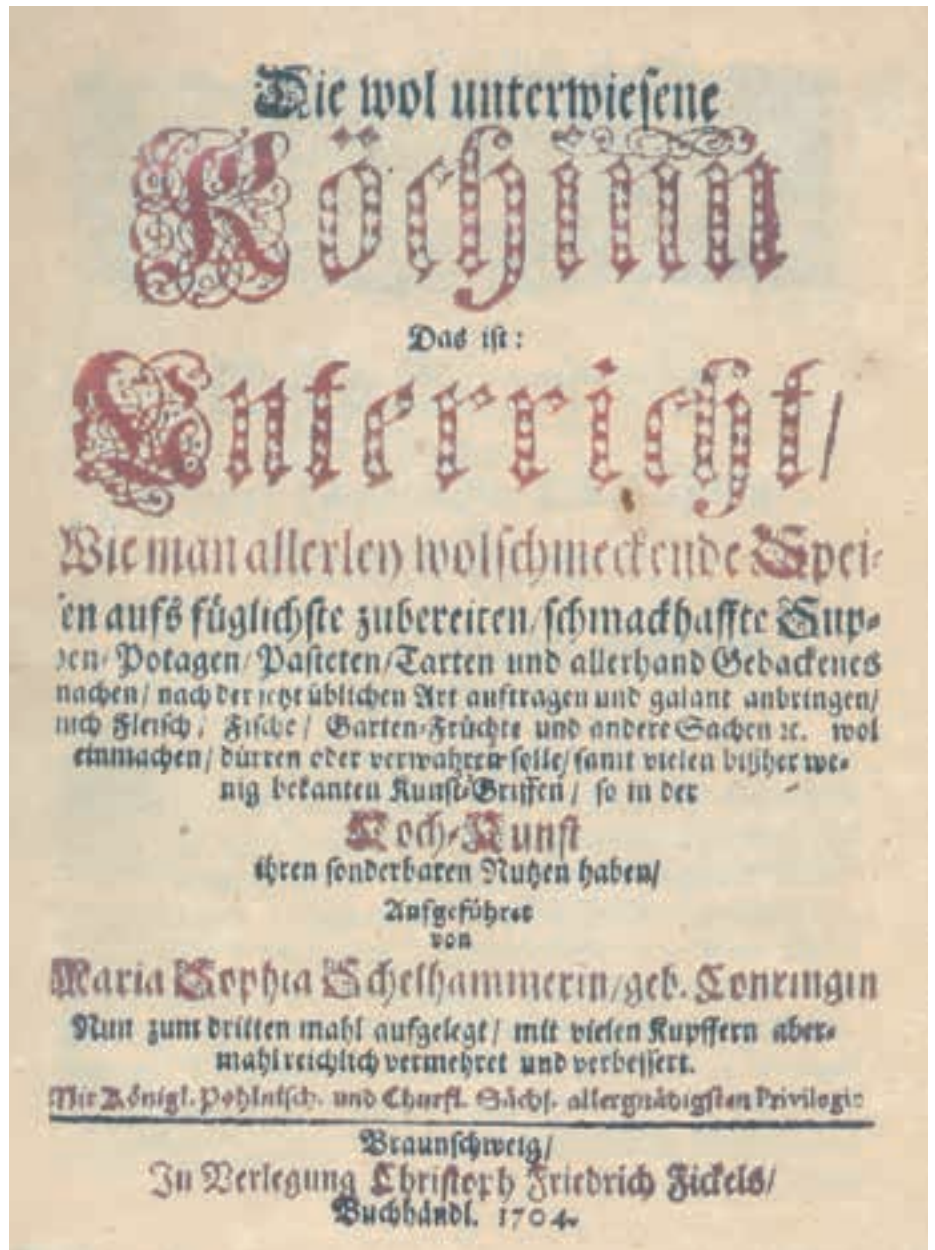 Die wol unterwiesene
Köchinn
Das ist:
Unterricht/
Wie man allerley wolschmeckende Spei-
en aufs füglichste zubereiten/schmackhaffte Sup-
pen/ Potagen/ Pasteten/Tarten und allerhand Gebackenes
machen/ nach der jetzt üblichen Art auftragen und galant anbringen/
auch Fleisch/ Fische/ Garten-Früchte und andere Sachen ꝛc. wol
einmachen/ dürren oder verwahren solle/ samt vielen bißher we-
nig bekanten Kunst-Griffen/ so in der
Koch-Kunst
ihren sonderbaren Nutzen haben/
Aufgeführet
von
Maria Sophia Schelhammerin/geb. Conringin
Nun zum dritten mahl aufgelegt/ mit vielen Kupffern aber-
mahl reichlich vermehret und verbessert.
Mit Königl. Pohlnisch. und Churfl. Sächs. allergnädigsten Privilegio
Braunschweig/
In Verlegung Christoph Friedrich Fickels/
Buchhändl. 1704.